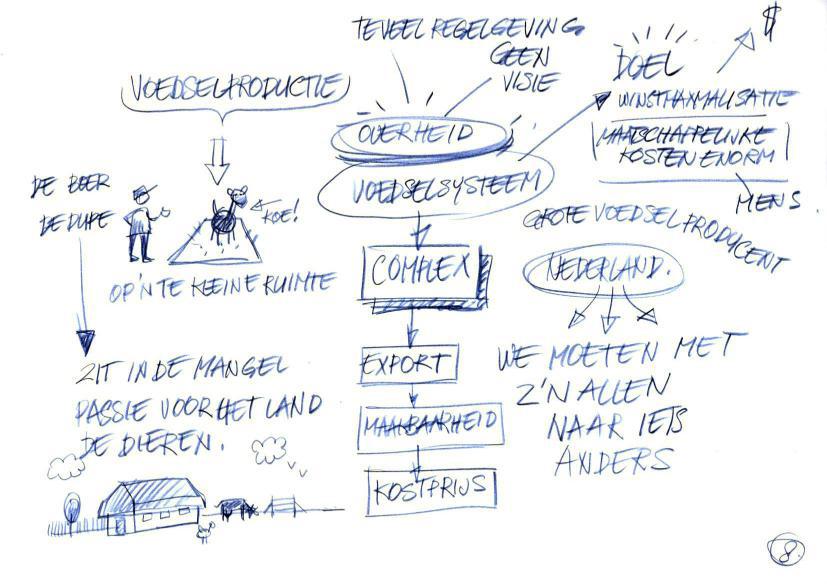 TEVEEL REGELGEVING
GEEN
VISIE
$
DOEL
WINSTMAXMALISATIE
MAATSCHAPPELIJKE
KOSTEN ENORM
MENS
VOEDSELPRODUCTIE
OVERHEID
VOEDSELSYSTEEM
DE BOER
DE DUPE
KOE!
OP'N TE KLEINE RUIMTE
GROTE VOEDSEL PRODUCENT
NEDERLAND.
COMPLEX
EXPORT
MAAKBAARHEID
KOSTPRIJS
ZIT IN DE MANGEL
PASSIE VOOR HET LAND
DE DIEREN.
WE MOETEN MET
Z'N ALLEN
NAAR IETS
ANDERS
8.